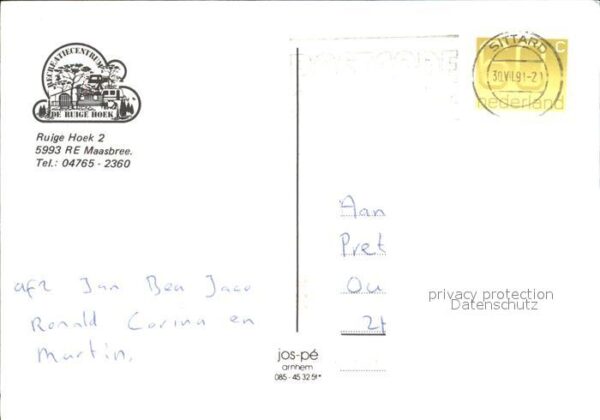 RECREATIECENTRUM
DE RUIGE HOEK
Ruige Hoek 2
5993 RE Maasbree.
Tel.: 04765 - 2360
SITTARD
30.VII.91-21
C
nederland
Aan
Pret
Ou
2t
privacy protection
Datenschutz
afz Jan Bea Jaco
Ronald Corina en
Martin.
jos-pé
arnhem
085-45 32 51*